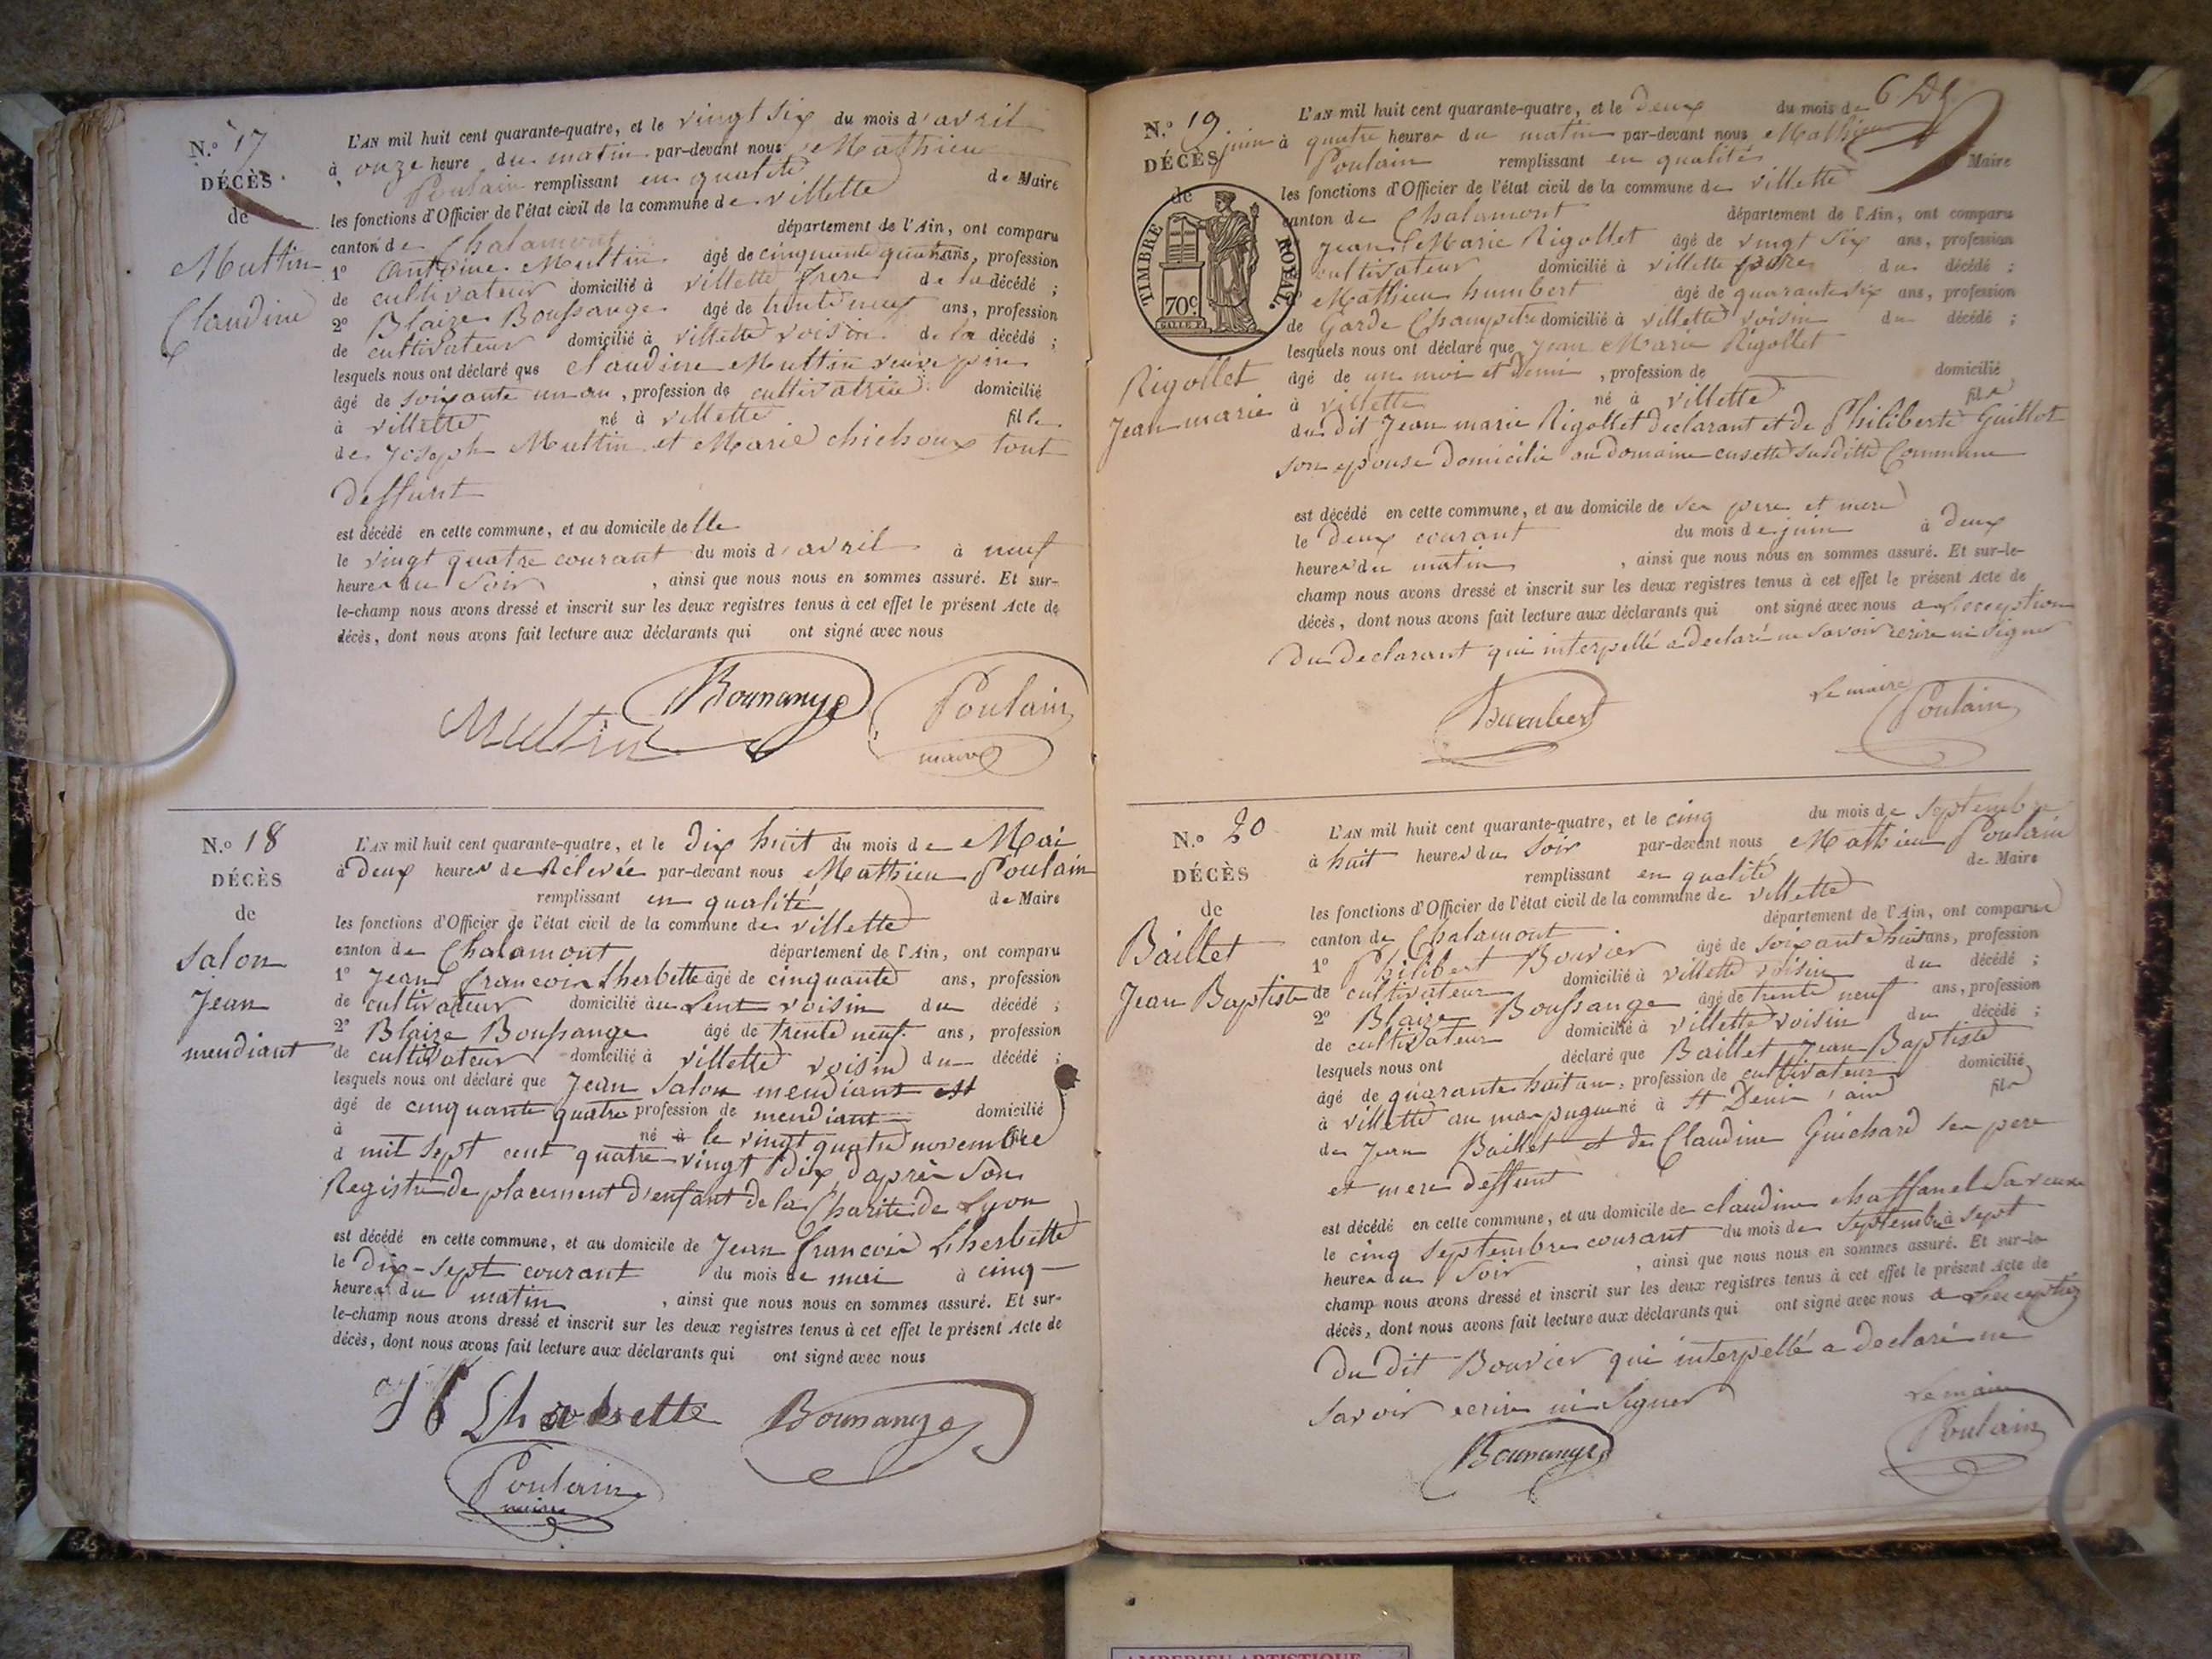 N.º 17
DÉCÈS
de
Muttin
Claudine
L'AN mil huit cent quarante-quatre, et le vingt six du mois d'avril
à onze heure du matin par-devant nous Mathieu
Poulain remplissant en qualité de Maire
les fonctions d'Officier de l'état civil de la commune de villette
canton de Chalamont département de l'Ain, ont comparu
1º Antoine Muttin âgé de cinquante quatre ans, profession
de cultivateur domicilié à villette frere de la décédé ;
2º Blaize Boussange âgé de trente neuf ans, profession
de cultivateur domicilié à villette voisin de la décédé ;
lesquels nous ont déclaré que claudine Muttin veuve pin
âgé de soixante un an, profession de cultivatrice domicilié
à villette né à villette fille
de Joseph Muttin et Marie chichoux tout
deffunt
est décédé en cette commune, et au domicile delle
le vingt quatre courant du mois d'avril à neuf
heures du soir, ainsi que nous nous en sommes assuré. Et sur-
le-champ nous avons dressé et inscrit sur les deux registres tenus à cet effet le présent Acte de
décès, dont nous avons fait lecture aux déclarants qui ont signé avec nous
Muttin Boussange Poulain
maire
N.º 18
DÉCÈS
de
Salon
Jean
mendiant
L'AN mil huit cent quarante-quatre, et le Dix huit du mois de Mai
à Deux heures de Rélevée par-devant nous Mathieu Poulain
remplissant en qualité de Maire
les fonctions d'Officier de l'état civil de la commune de villette
canton de Chalamont département de l'Ain, ont comparu
1º Jean francois Lherbette âgé de cinquante ans, profession
de cultivateur domicilié à Lent voisin du décédé ;
2º Blaize Boussange âgé de trente neuf ans, profession
de cultivateur domicilié à villette voisin du décédé ;
lesquels nous ont déclaré que Jean Salon mendiant est
âgé de cinquante quatre profession de mendiant domicilié
à né à le vingt quatre novembre fil
d mil sept cent quatre-vingt dix d'aprèr son
Registre de placement d'enfant de la Charite de Lyon
est décédé en cette commune, et au domicile de Jean francois Lherbette
le dix-sept courant du mois de mai à cinq
heures du matin, ainsi que nous nous en sommes assuré. Et sur-
le-champ nous avons dressé et inscrit sur les deux registres tenus à cet effet le présent Acte de
décès, dont nous avons fait lecture aux déclarants qui ont signé avec nous
Lherbette Boussange
Poulain
maire
6
N.º 19
DÉCÈS
de
TIMBRE ROYAL.
70 c
Rigollet
Jean marie
L'AN mil huit cent quarante-quatre, et le Deux du mois de
juin à quatre heures du matin par-devant nous Mathieu
Poulain remplissant en qualité Maire
les fonctions d'Officier de l'état civil de la commune de villette
canton de Chalamont département de l'Ain, ont comparu
Jean Marie Rigollet âgé de vingt six ans, profession
cultivateur domicilié à villette père du décédé ;
Mathieu humbert âgé de quarante six ans, profession
de Garde Champetre domicilié à villette voisin du décédé ;
lesquels nous ont déclaré que Jean Marie Rigollet
âgé de un moi et demi, profession de domicilié
à villette né à villette fils
du dit Jean marie Rigollet declarant et de Philiberte Guillot
son epouse Domicilie au domaine cusette susditte Commune
est décédé en cette commune, et au domicile de ses pere et mere
le Deux courant du mois de juin à deux
heures du matin, ainsi que nous nous en sommes assuré. Et sur-le-
champ nous avons dressé et inscrit sur les deux registres tenus à cet effet le présent Acte de
décès, dont nous avons fait lecture aux déclarants qui ont signé avec nous a lexception
du declarant qui interpellé a declaré ne savoir ecrire ni signer
Humbert Le maire
Poulain
N.º 20
DÉCÈS
de
Baillet
Jean Baptiste
L'AN mil huit cent quarante-quatre, et le cinq du mois de septembre
à huit heures du soir par-devant nous Mathieu Poulain
remplissant en qualité de Maire
les fonctions d'Officier de l'état civil de la commune de villette
canton de Chalamont département de l'Ain, ont comparu
1º Philibert Bouvier âgé de soixante huit ans, profession
de cultivateur domicilié à villette voisin du décédé ;
2º Blaize Boussange âgé de trente neuf ans, profession
de cultivateur domicilié à villette voisin du décédé ;
lesquels nous ont déclaré que Baillet Jean Baptiste
âgé de quarante huit an, profession de cultivateur domicilié
à villette au né à St Denis ain fils
de Jean Baillet et de Claudine Guichard ses pere
et mere deffunt
est décédé en cette commune, et au domicile de claudine chaffanel sa veuve
le cinq septembre courant du mois de septembre à sept
heures du soir, ainsi que nous nous en sommes assuré. Et sur-le-
champ nous avons dressé et inscrit sur les deux registres tenus à cet effet le présent Acte de
décès, dont nous avons fait lecture aux déclarants qui ont signé avec nous a lexception
du dit Bouvier qui interpellé a declaré ne
savoir ecrire ni signer
Le maire
Boussange Poulain
AMBERIEU ARTISTIQUE